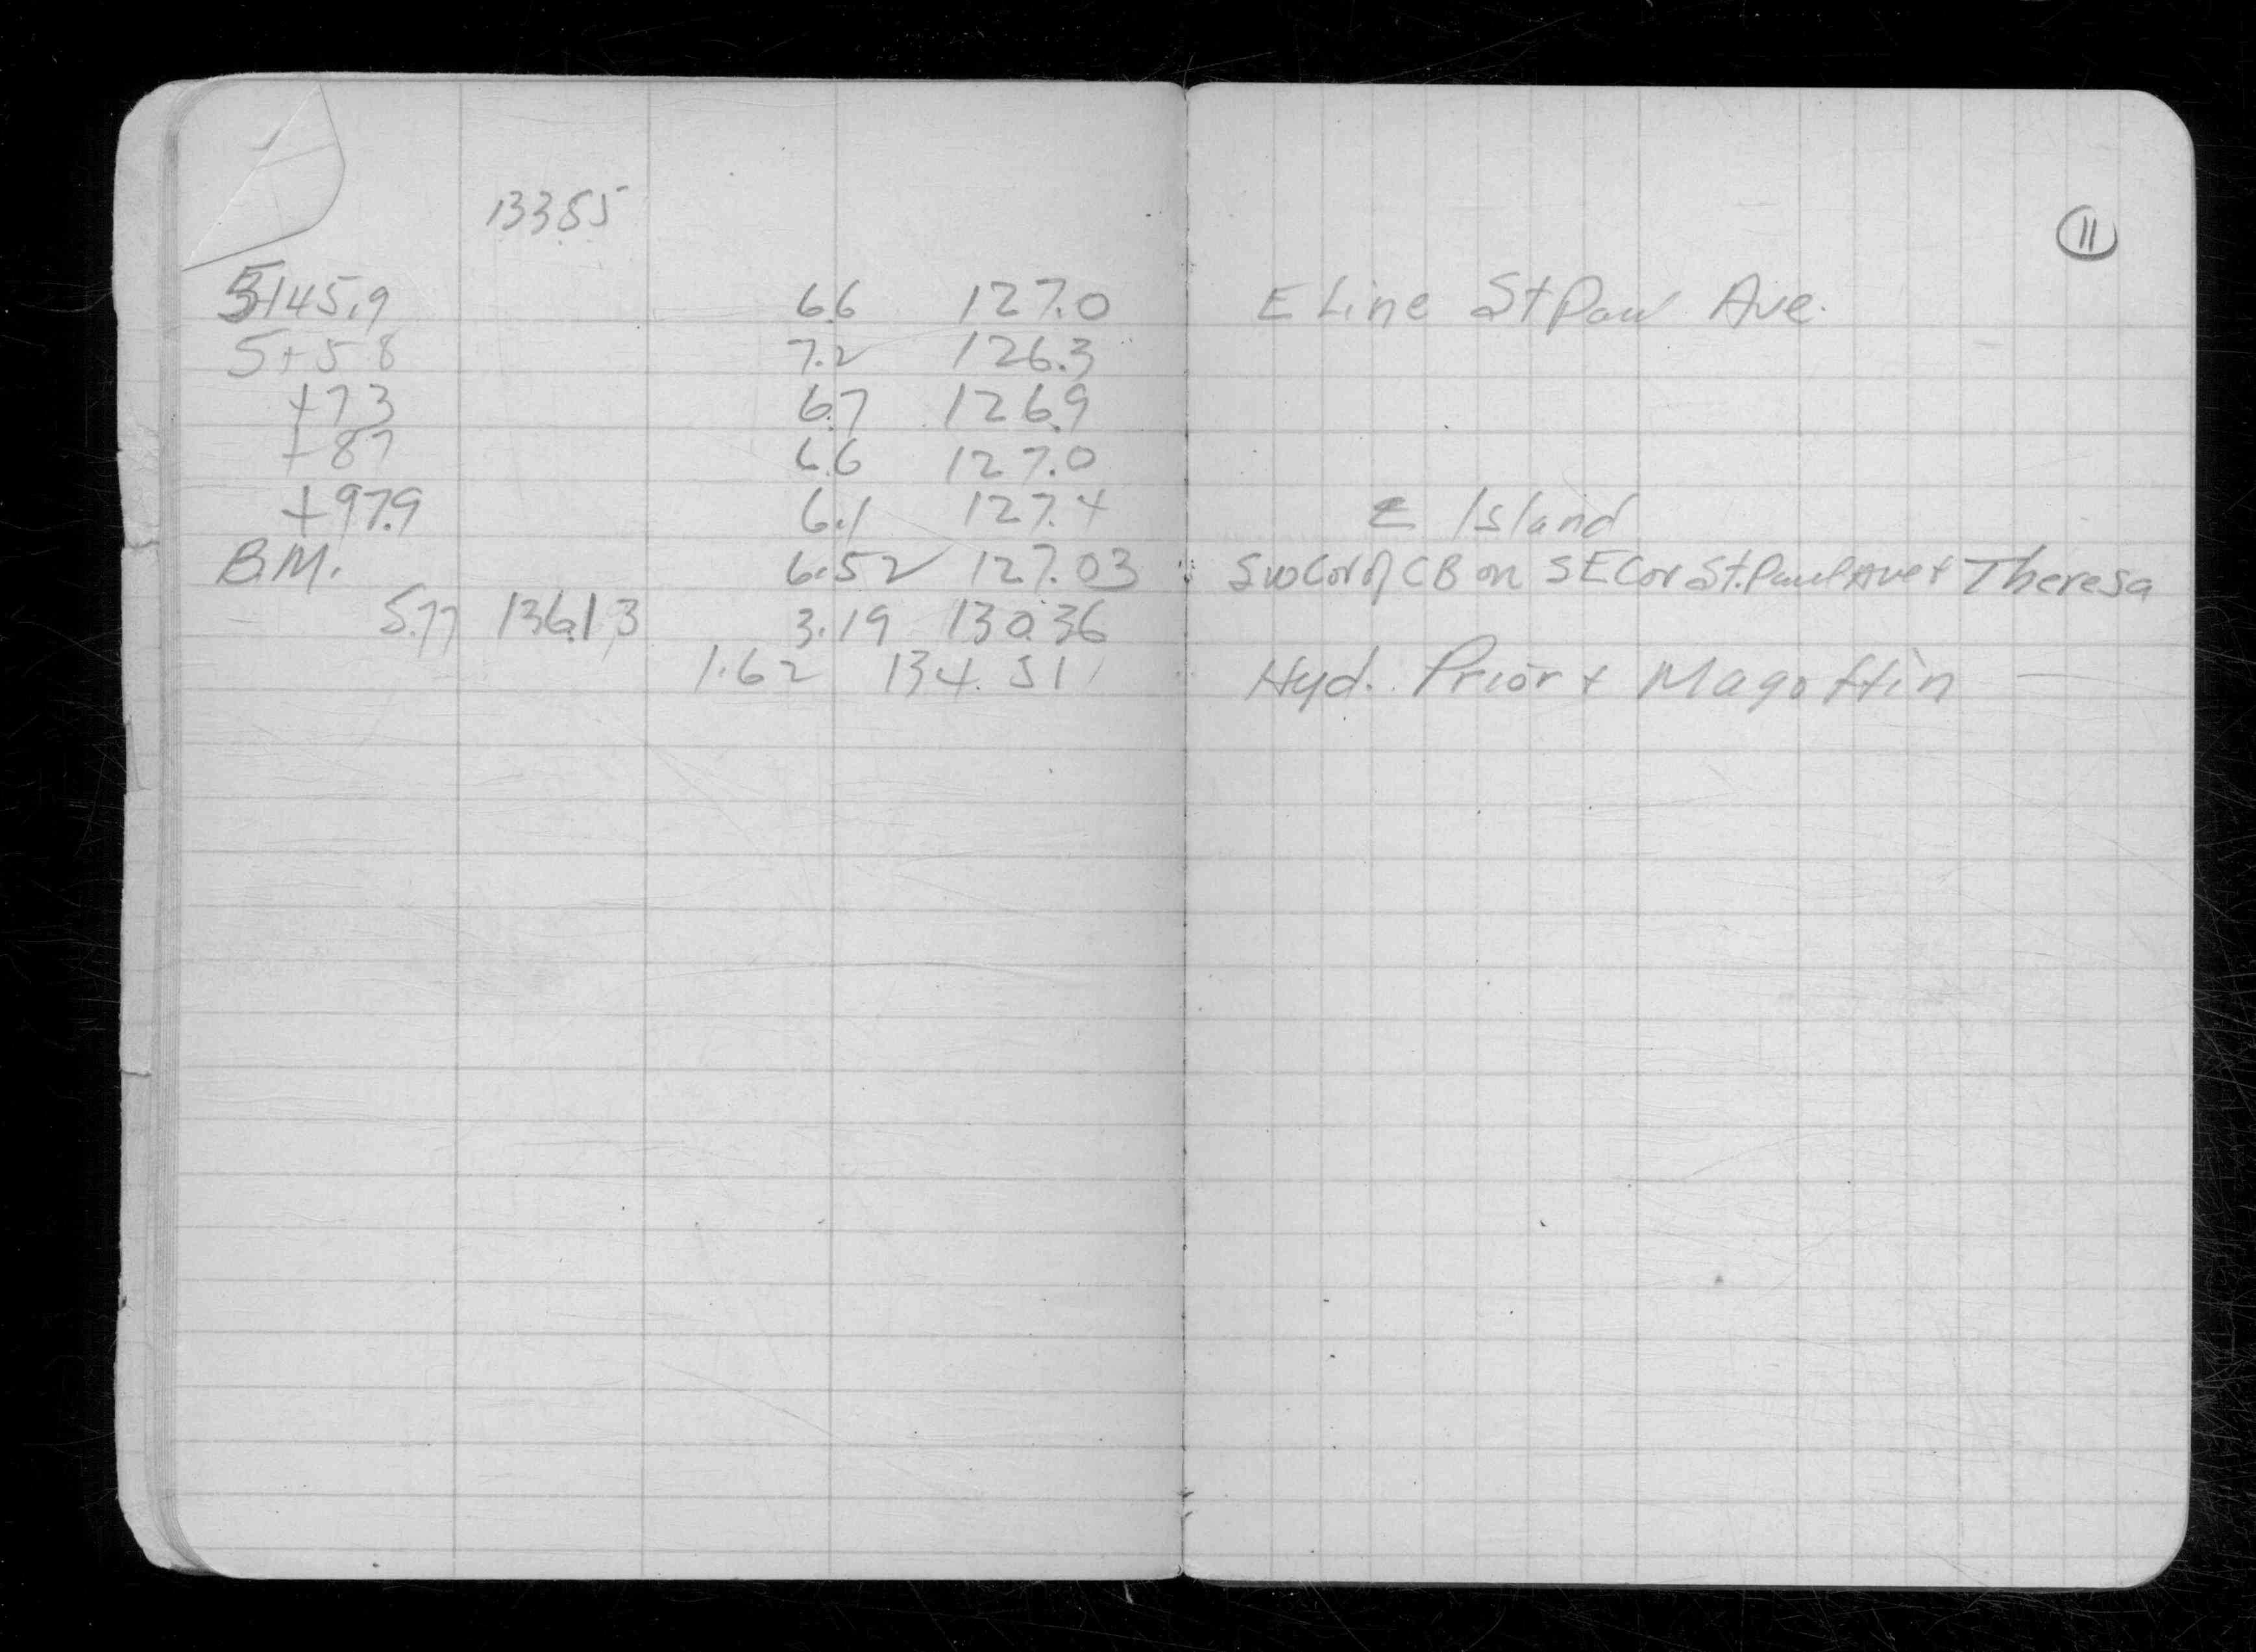 133.55
11
5+45.9 6.6 127.0 E Line St Paul Ave.
5+58 7.2 126.3
+73 6.7 126.9
+87 6.6 127.0
+97.9 6.1 127.4 E Island
B.M. 6.52 127.03 SW Cor of CB on SE Cor St. Paul Ave + Theresa
5.77 136.13 3.19 130.36
1.62 134.51 Hyd. Prior + Magoffin